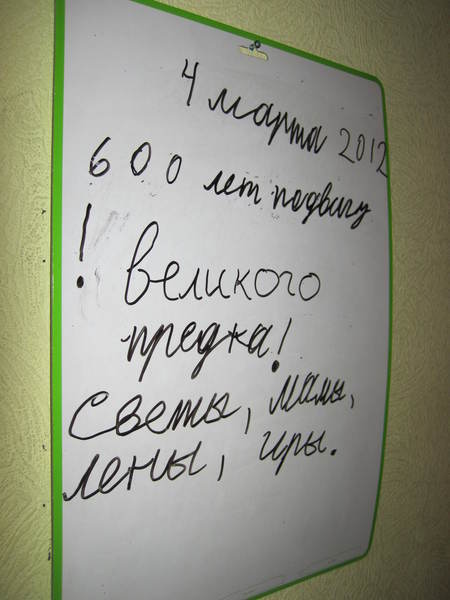 4 марта 2012
600 лет подвигу
! великого
предка!
Светы, мамы,
лены, иры.